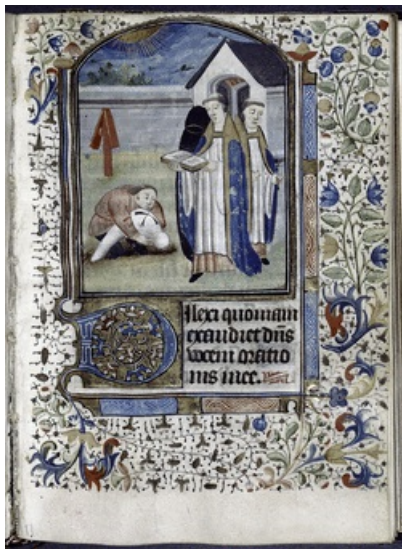 Dilexi quoniam
exaudiet dn̄s
vocem oratio
nis mee.